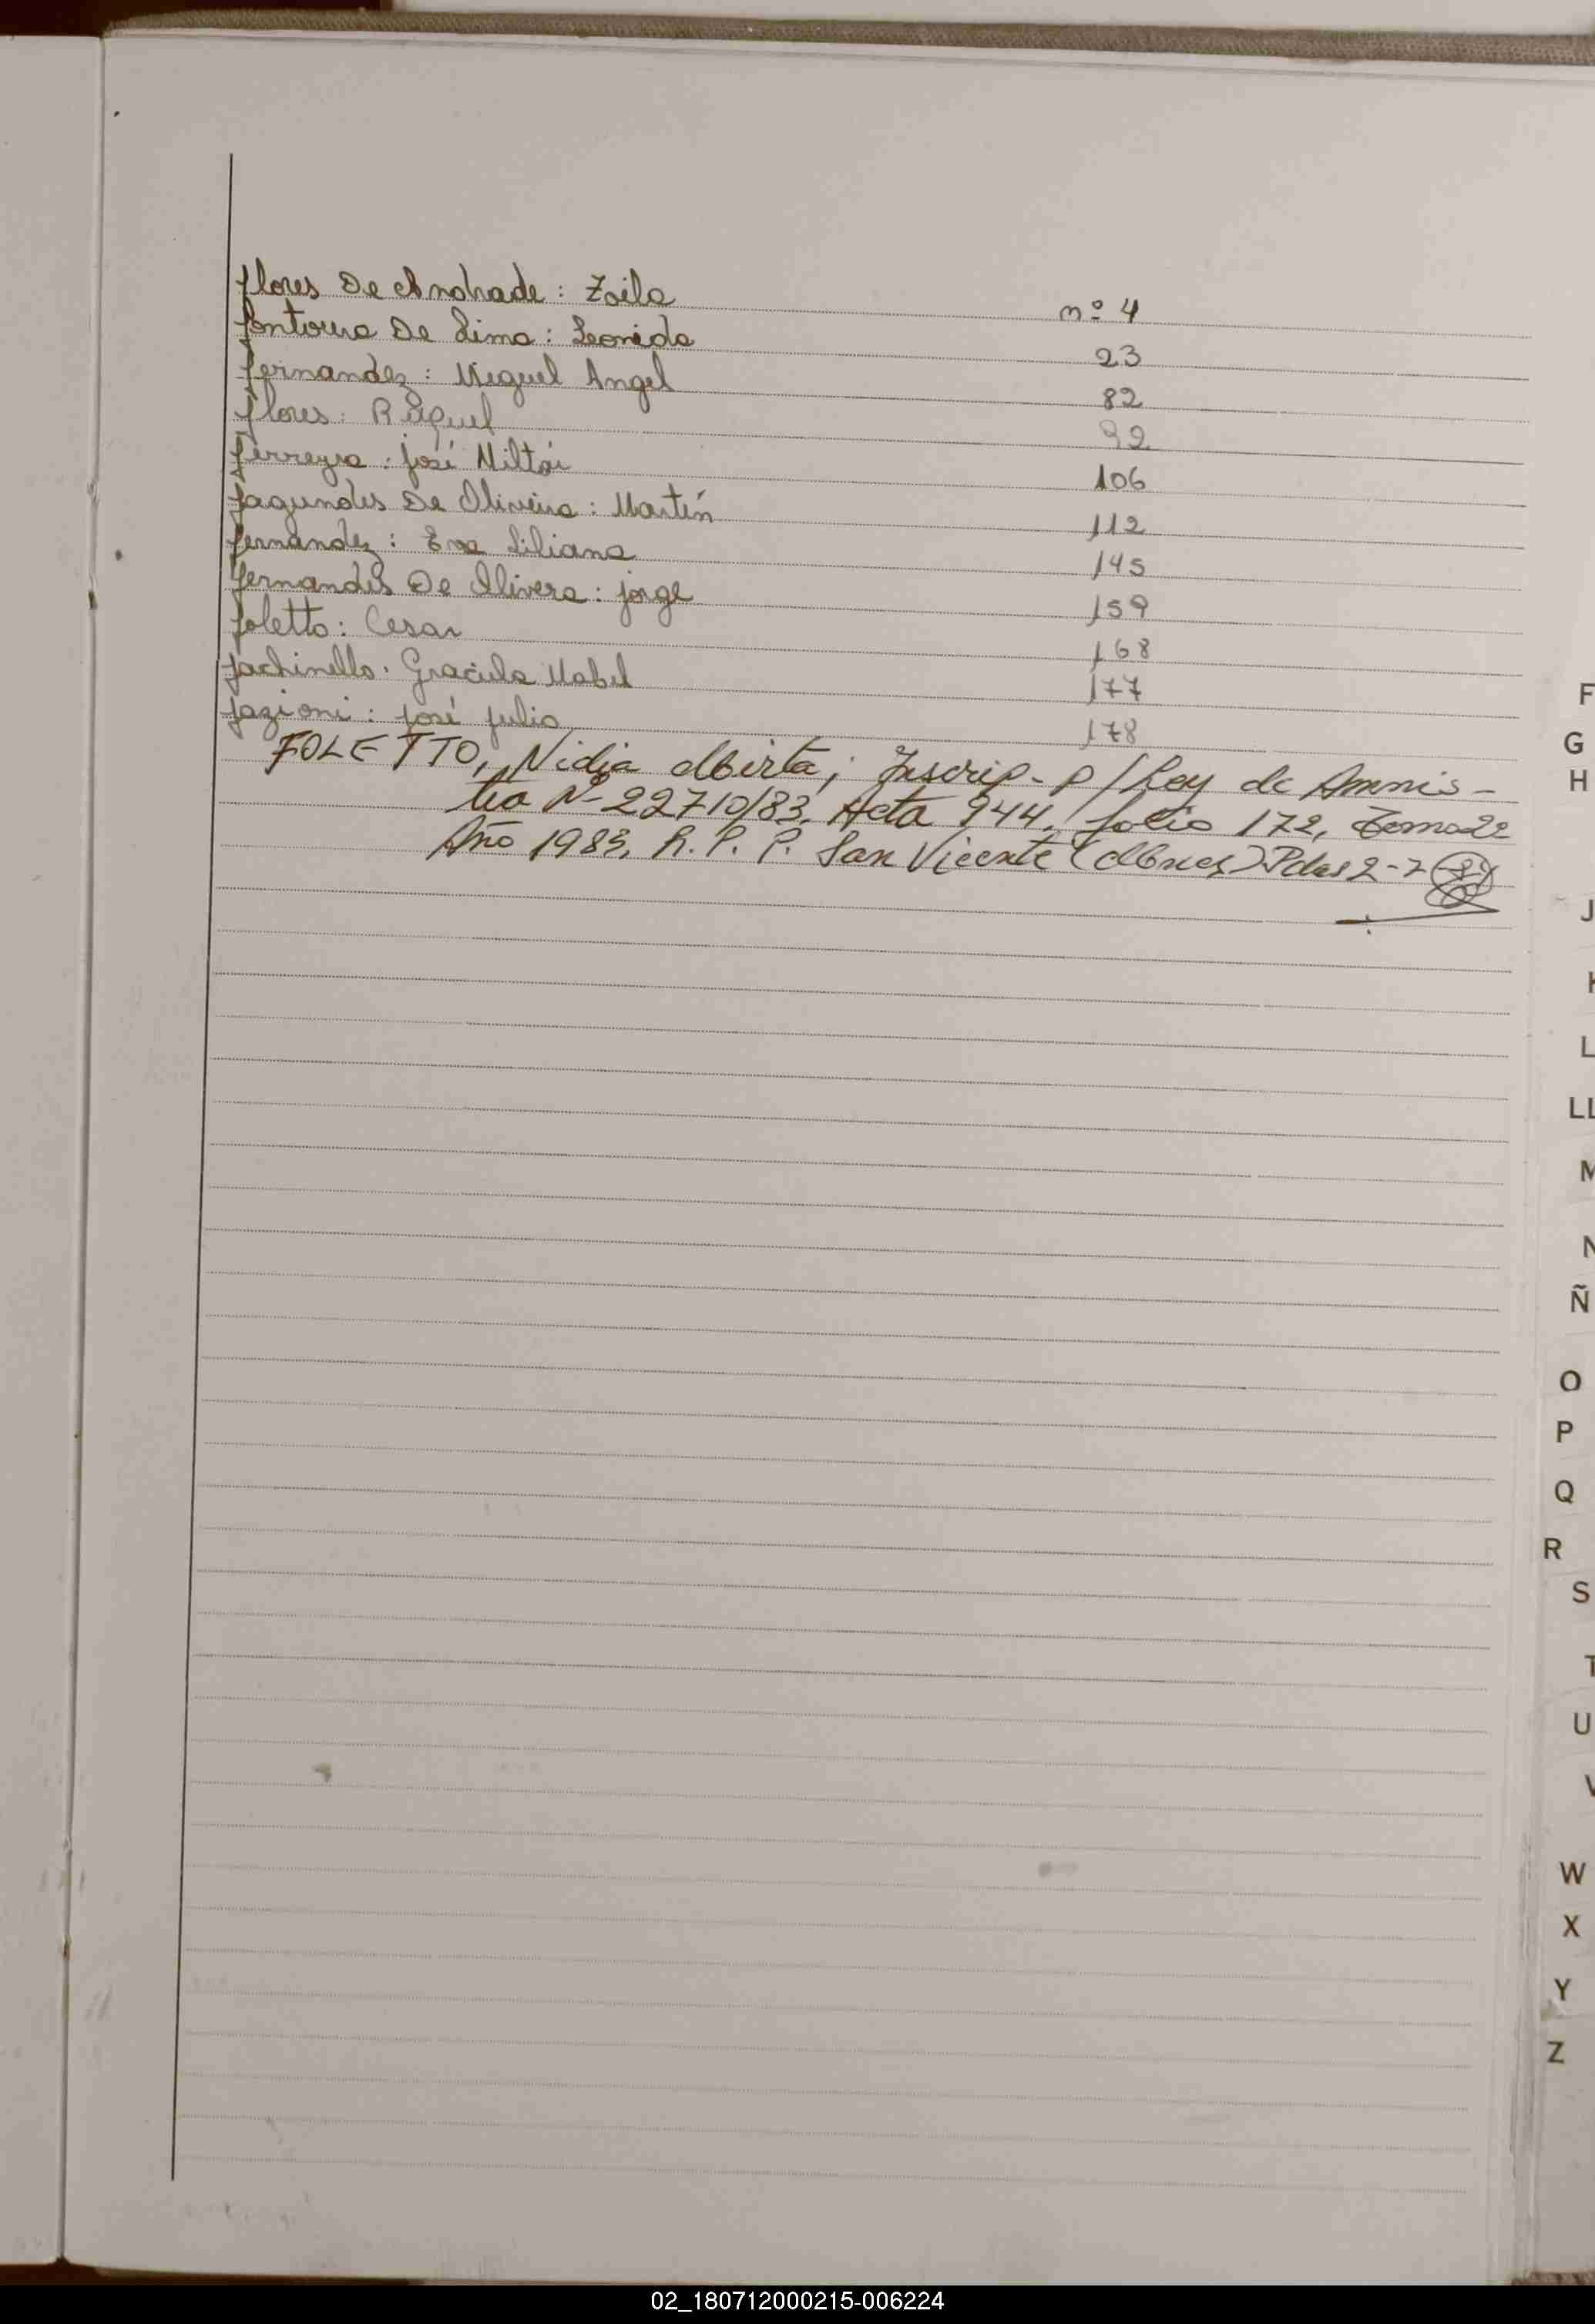 Flores De Andrade: Zoila nº 4
Fontoura De Lima: Leonida 23
Fernandez: Miguel Angel 82
Flores: Raquel 92
Ferreyra: José Miltón 106
Fagundes De Oliveira: Martín 112
Fernandez: Eva Liliana 145
Fernandes De Olivera: Jorge 159
Foletto: Cesar 168
Fachinello: Graciela Mabel 177
Fazioni: José Julio 178
FOLETTO, Nidia Mirta; Inscrip- p/Ley de Amnis-
tia Nº 22710/83, Acta 944, folio 172, Tomo 2º
Año 1983, R. P. P. San Vicente (Mnes) Pdas 2-7
F
G
H
J
K
L
LL
M
N
Ñ
O
P
Q
R
S
T
U
V
W
X
Y
Z
02_180712000215-006224